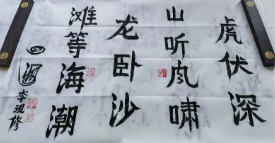 虎伏深
山听风啸
龙卧沙
滩等海潮
李现修